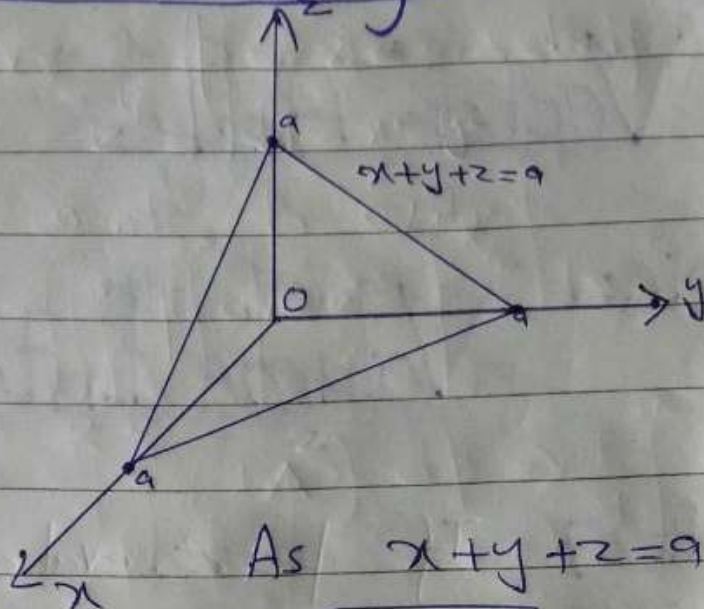 z
a
x+y+z=a
O
a
y
a
As x+y+z=a
x